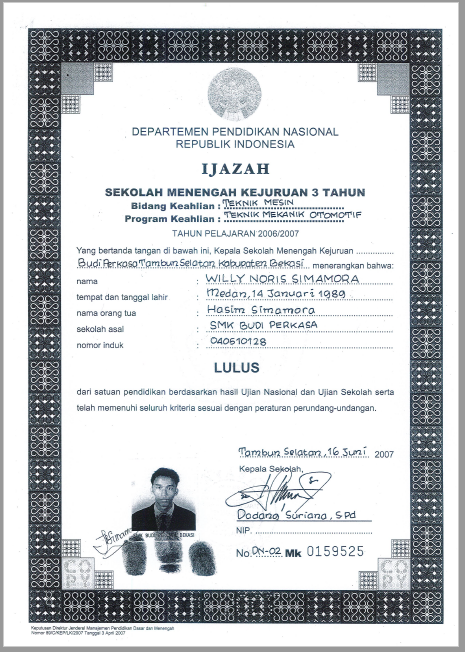 DEPARTEMEN PENDIDIKAN NASIONAL
REPUBLIK INDONESIA
IJAZAH
SEKOLAH MENENGAH KEJURUAN 3 TAHUN
Bidang Keahlian : TEKNIK MESIN
Program Keahlian : TEKNIK MEKANIK OTOMOTIF
TAHUN PELAJARAN 2006/2007
Yang bertanda tangan di bawah ini, Kepala Sekolah Menengah Kejuruan ................
Budi Perkasa Tambun Selatan Kabupaten Bekasi menerangkan bahwa:
nama : WILLY NORIS SIMAMORA
tempat dan tanggal lahir : Medan, 14 Januari 1989
nama orang tua : Hasim Simamora
sekolah asal : SMK BUDI PERKASA
nomor induk : 040510128
LULUS
dari satuan pendidikan berdasarkan hasil Ujian Nasional dan Ujian Sekolah serta
telah memenuhi seluruh kriteria sesuai dengan peraturan perundang-undangan.
Tambun Selatan, 16 Juni 2007
Kepala Sekolah,
Dadang Suriana, SPd
NIP.
No. DN-02 Mk 0159525
COPY
COPY
Keputusan Direktur Jenderal Manajemen Pendidikan Dasar dan Menengah
Tanggal 3 April 2007